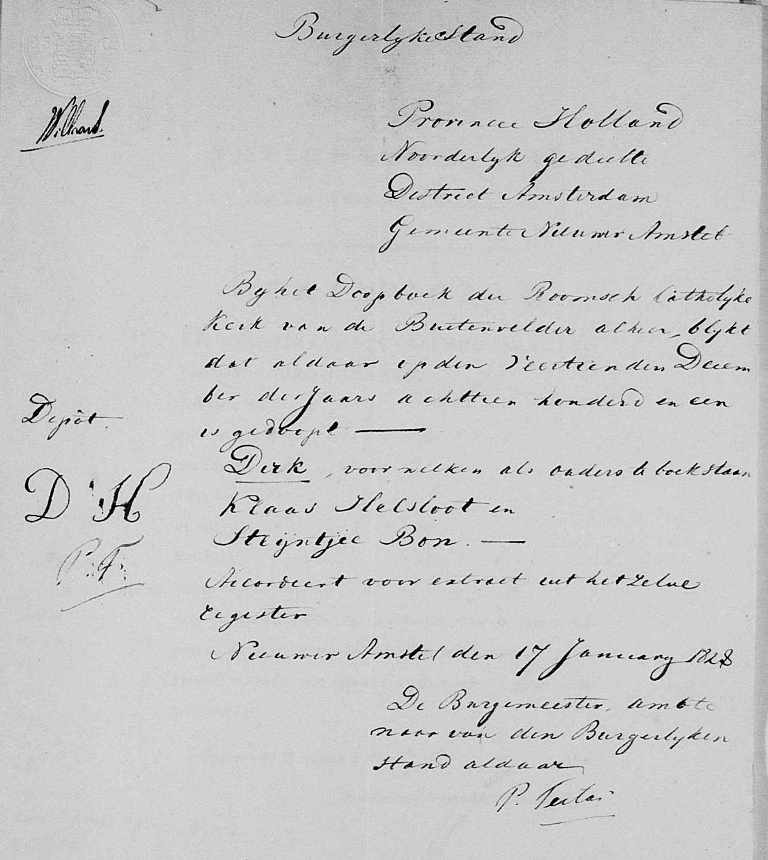 Burgerlyke Stand
Provincie Holland
Noorderlyk gedeelte
District Amsterdam
Gemeente Nieuwer Amstel
By het Doopboek der Roomsch Catholyke
Kerk van de Buitenvelder alhier, blykt
dat aldaar op den Veertienden Decem
ber des Jaars achttien honderd en een
is gedoopt —
Depôt.
Dirk, voor welken als ouders te boek staan
D H
Klaas Helsloot en
Steijntjee Bon. —
P. F.
Accordeert voor extract uit het zelve
register
Nieuwer Amstel den 17 January 1828
De Burgemeester, ambte
naar van den Burgerlyken
stand aldaar
P.